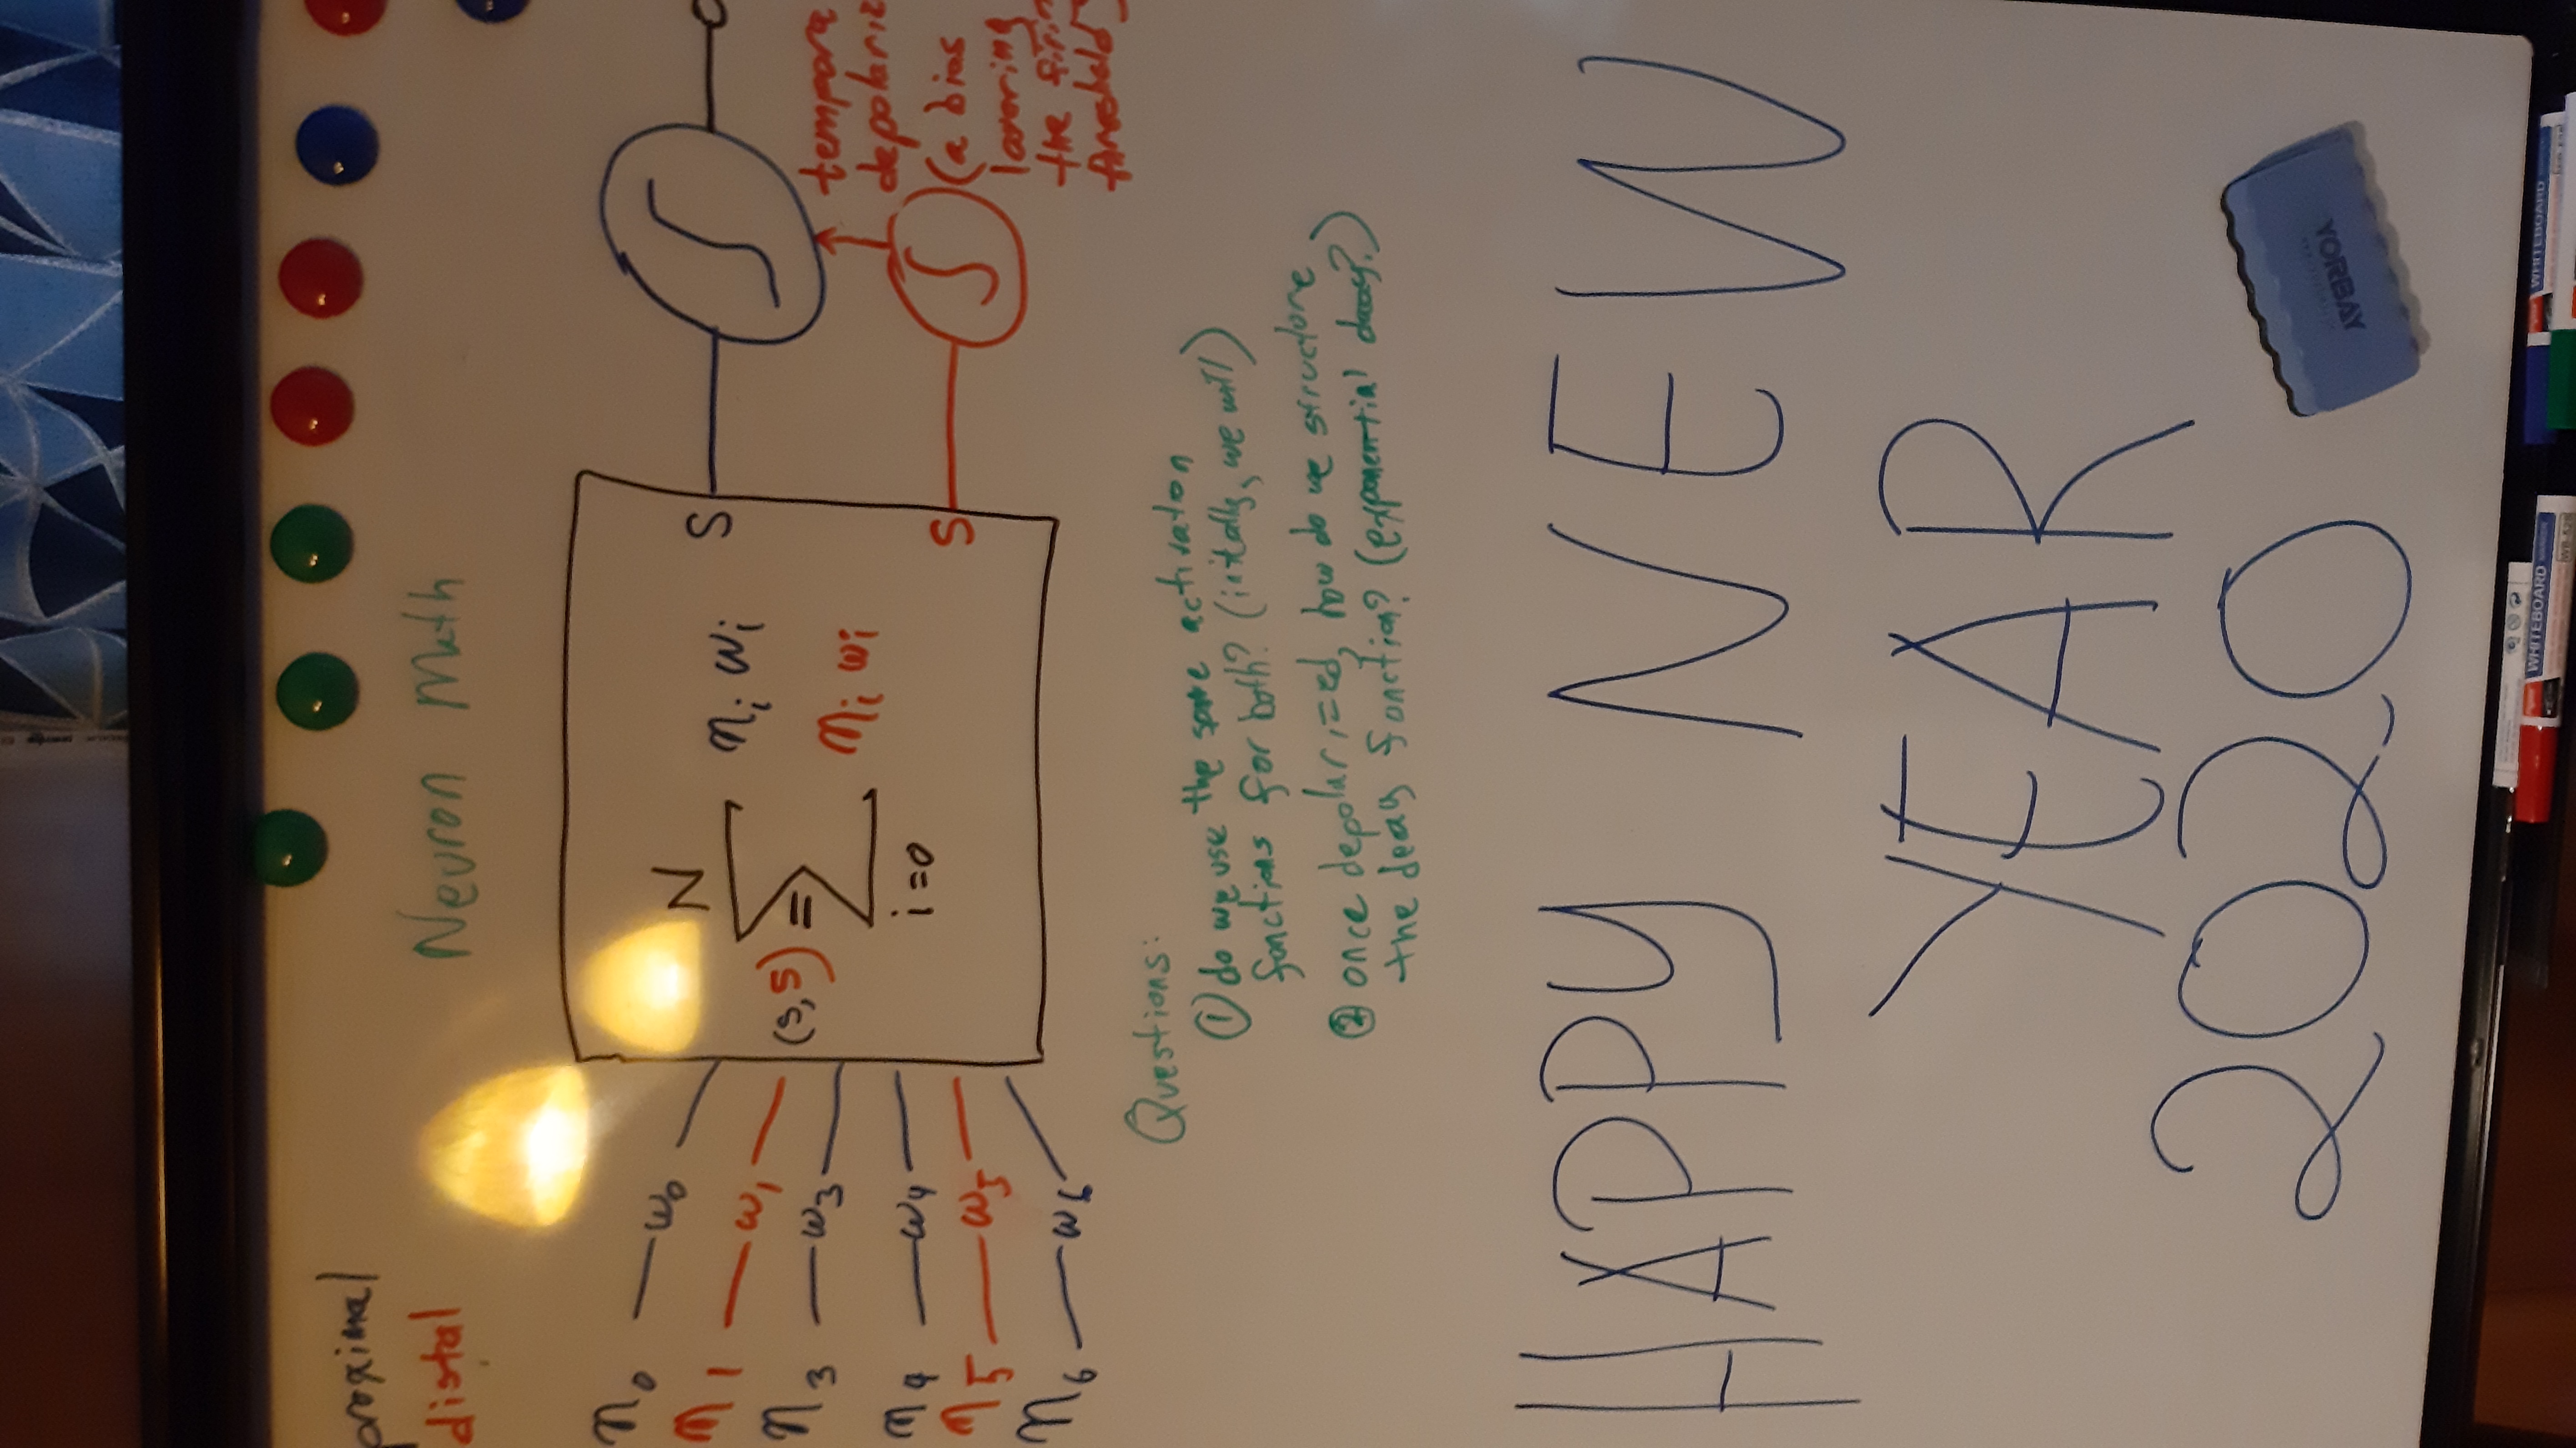 proximal
distal
Neuron Math
n0 w0
n1 w1
n3 w3
n4 w4
n5 w5
n6 w6
N
(s,s) = Σ ni wi
ni wi
i=0
S
S
tempora
depolariz
(a bias
lavering
the firin
threshold)
Questions:
① do we use the same activaton
functions for both? (initally, we will)
② once depolarized, how do we structure
the decay function? (exponential decay?)
HAPPY NEW
YEAR
2020
YORBAY
WHITEBOARD MARKER
WHITEBOARD